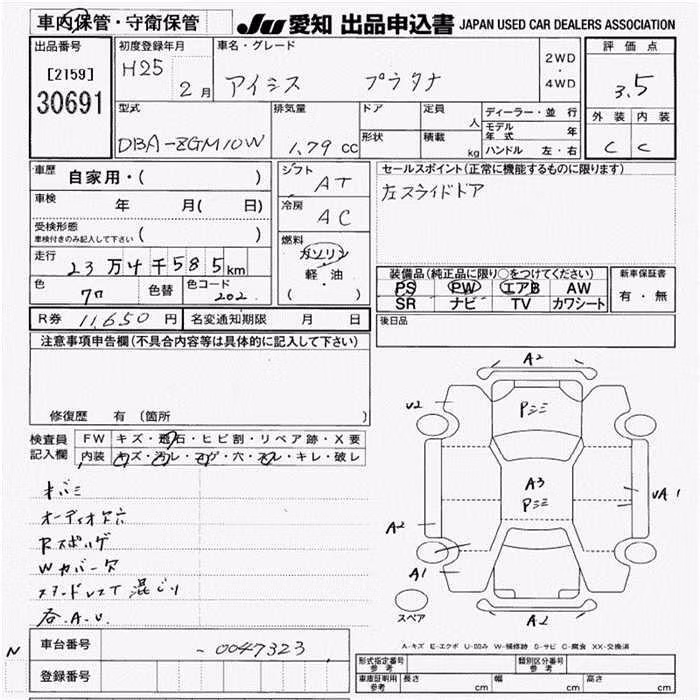 車内保管・守衛保管
JU 愛知 出品申込書 JAPAN USED CAR DEALERS ASSOCIATION
出品番号
[2159]
30691
初度登録年月
H25
2 月
車名・グレード
アイシス プラタナ
2WD
・
4WD
評価点
3.5
外装 内装
C C
型式
DBA-ZGM10W
排気量
1.79 cc
ドア
形状
定員
人
積載
kg
ディーラー・並行
モデル年式 年
ハンドル 左・右
車歴
自家用・( )
車検
年 月( 日)
受検形態
車検付きのみ記入して下さい ( )
走行
23万4千585km
色
色替
色コード
202
シフト
AT
冷房
AC
燃料
ガソリン
・
軽・油
( )
セールスポイント(正常に機能するものに限ります)
左スライドドア
装備品(純正品に限り○をつけてください)
PS PW エアB AW
SR ナビ TV カワシート
新車保証書
有・無
後日品
R券 11,650 円
名変通知期限 月 日
注意事項申告欄(不具合内容等は具体的に記入して下さい)
修復歴 有(箇所 )
検査員
記入欄
FW キズ・飛石・ヒビ割・リペア跡・X要
内装 キズ・汚レ・コゲ・穴・スレ・キレ・破レ
オーディオ欠穴
Wカバー欠
各A.U.
A2
V2
Pミミ
A3
Pミミ
UA1
A2
A1
A2
スペア
A-キズ E-エクボ U-凹み W-補修跡 S-サビ C-腐食 XX-交換済
N
車台番号
-0047323
登録番号
形式指定番号
参考
類別区分番号
参考
車庫証明用
参考
長さ cm
幅 cm
高さ cm